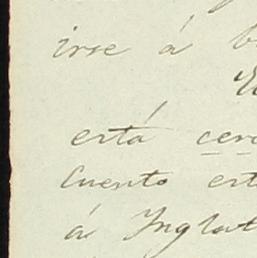 irse á b
E
está cerc
Cuento est
á Inglat